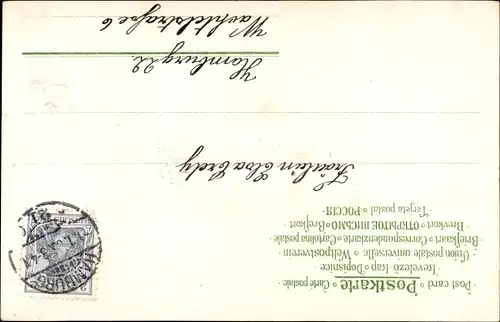 Postkarte
Post card ∘ Carte postale
Levelező-lap ∘ Dopisnice
Union postale universelle ∘ Weltpostverein
Briefkaart ∘ Correspondenzkarte ∘ Cartolina postale
Brevkort ∘ ОТКРЫТОЕ ПИСЬМО ∘ Brefkort
Tarjeta postal ∘ РОССІЯ
Fräulein Elsa
Hamburg 22
Wachtelstraße 6
HAMBURG